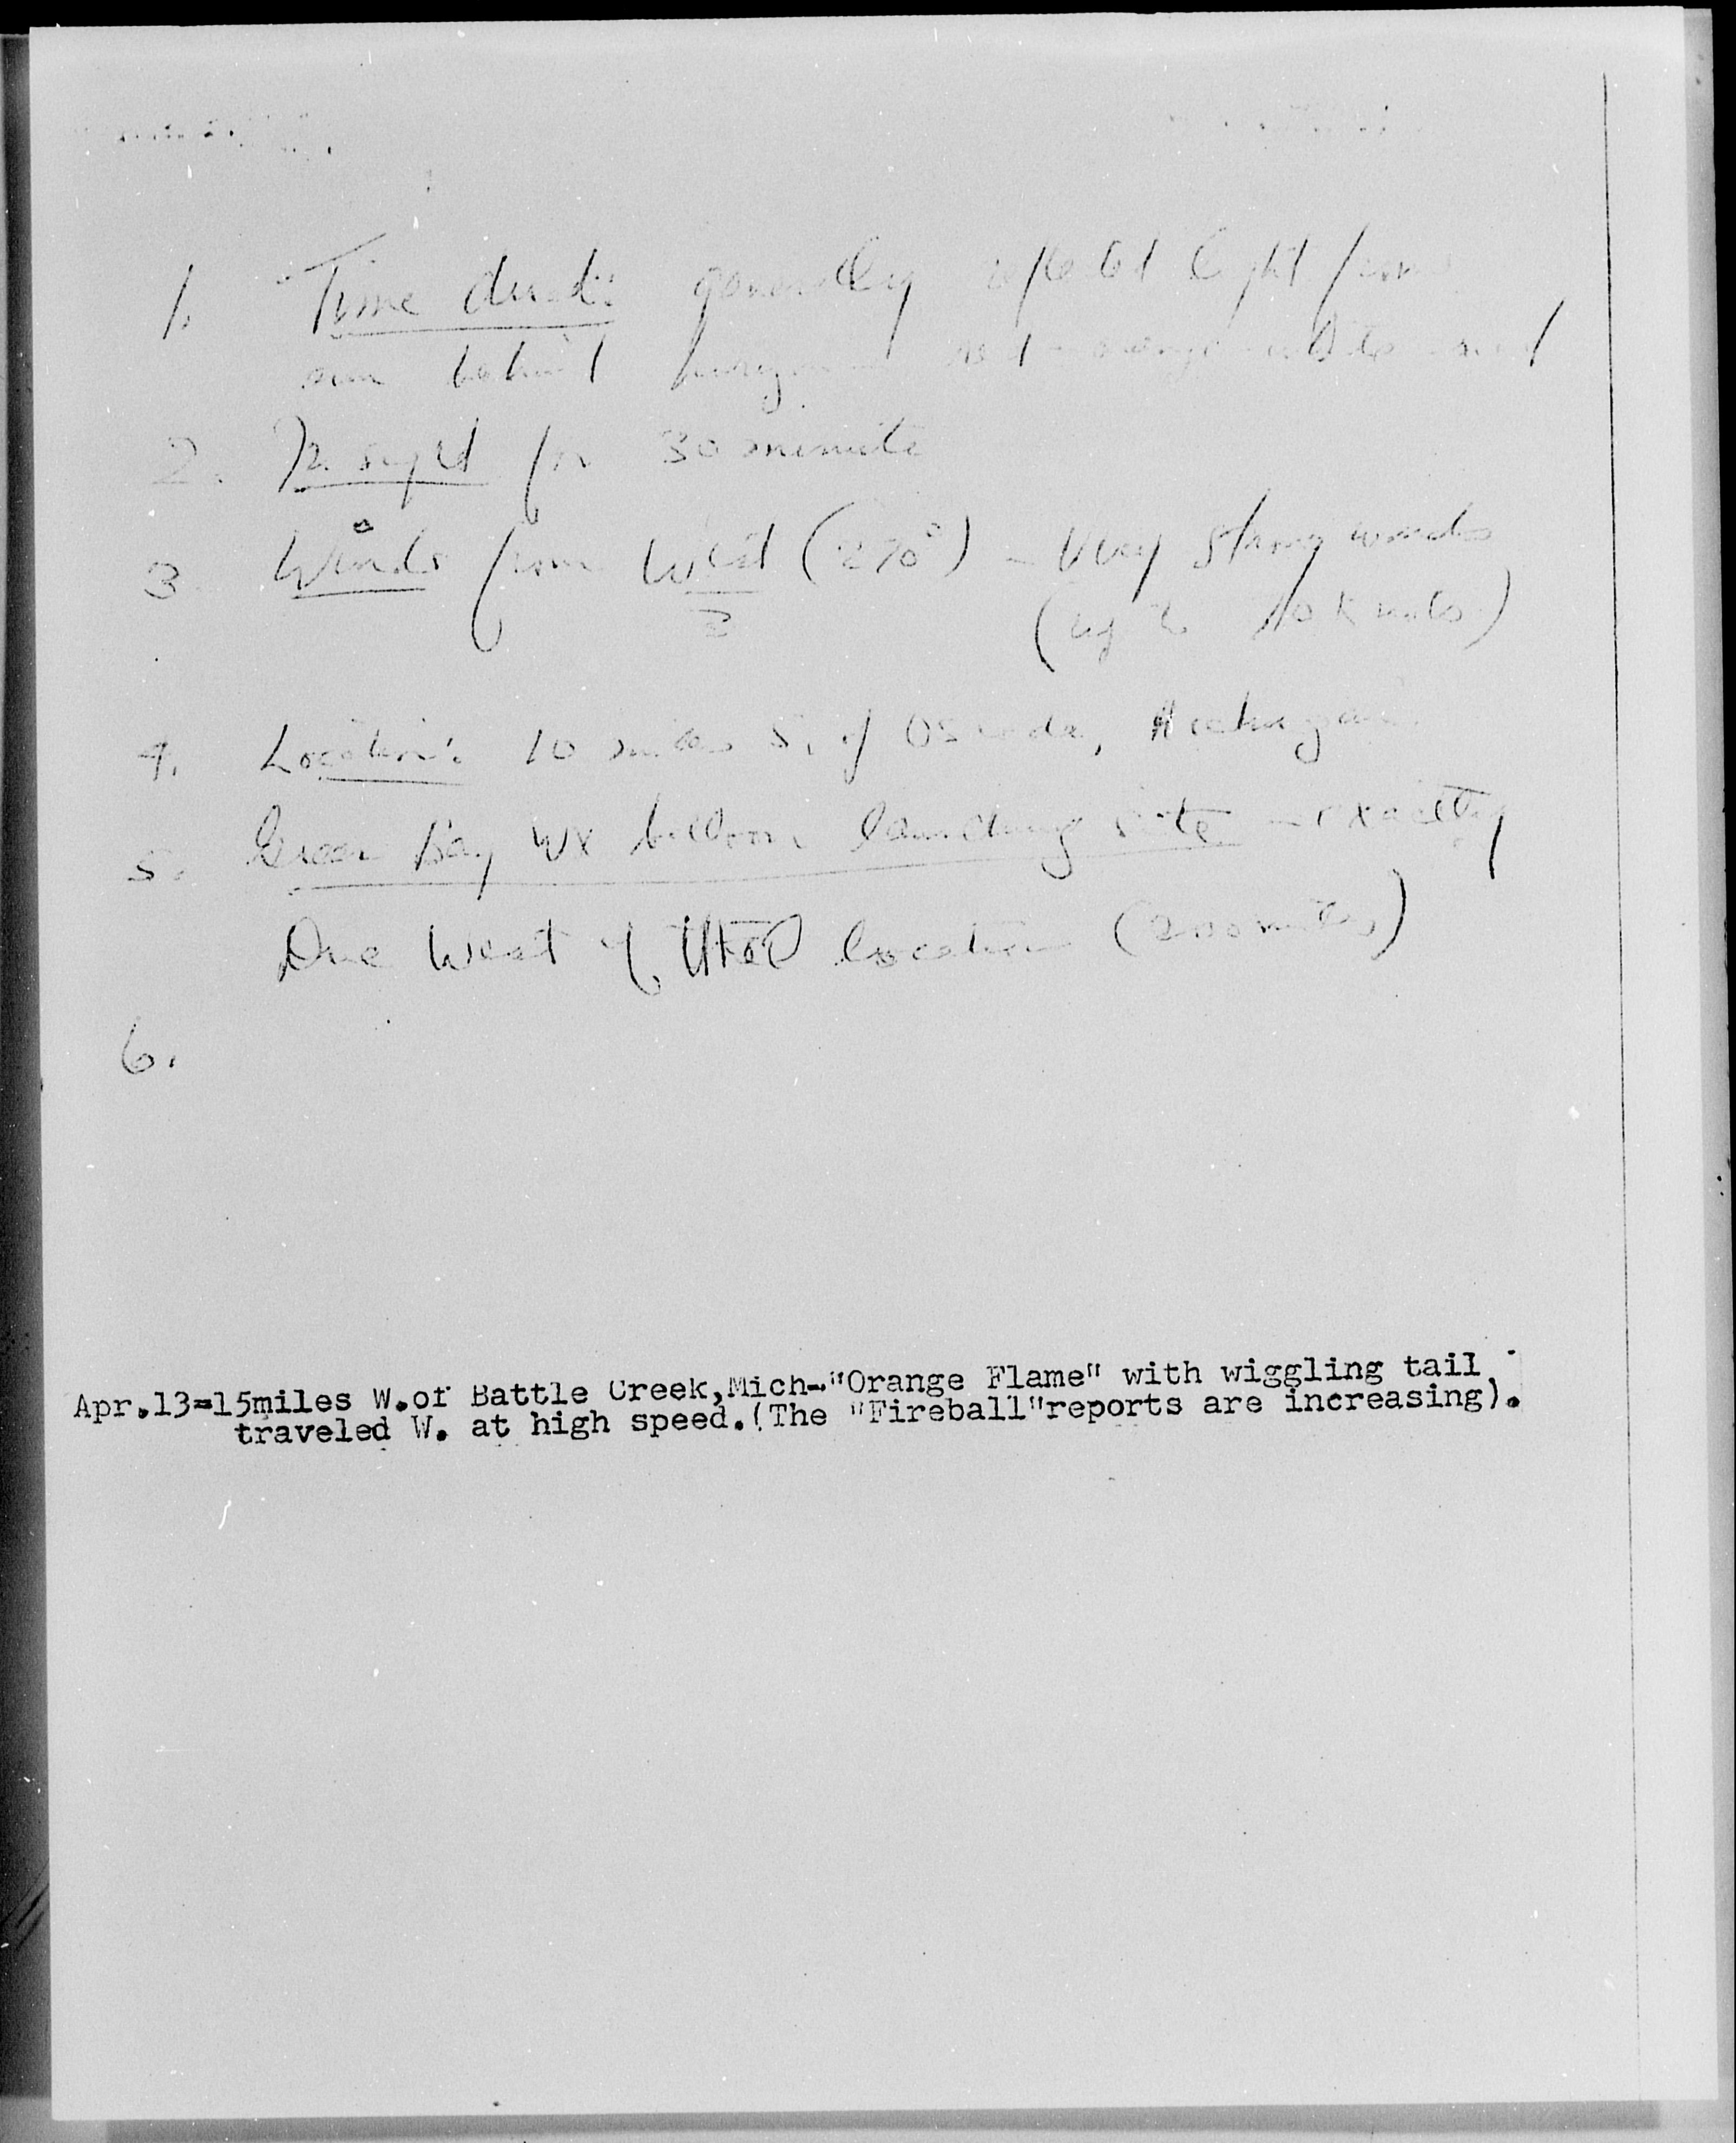 1. Time dusk: generally reflected light from
sun behind horizon red-orange-white and
2. In sight for 30 minute
3. Winds from West (270°) - Very strong winds
(up to knots)
4. Location: 10 miles S. of Oscoda, Michigan.
5. Green Bay WX balloon launching site - exactly
Due West of location (200 miles)
6.
Apr.13=15miles W.of Battle Creek,Mich-"Orange Flame" with wiggling tail
traveled W. at high speed.(The "Fireball"reports are increasing).